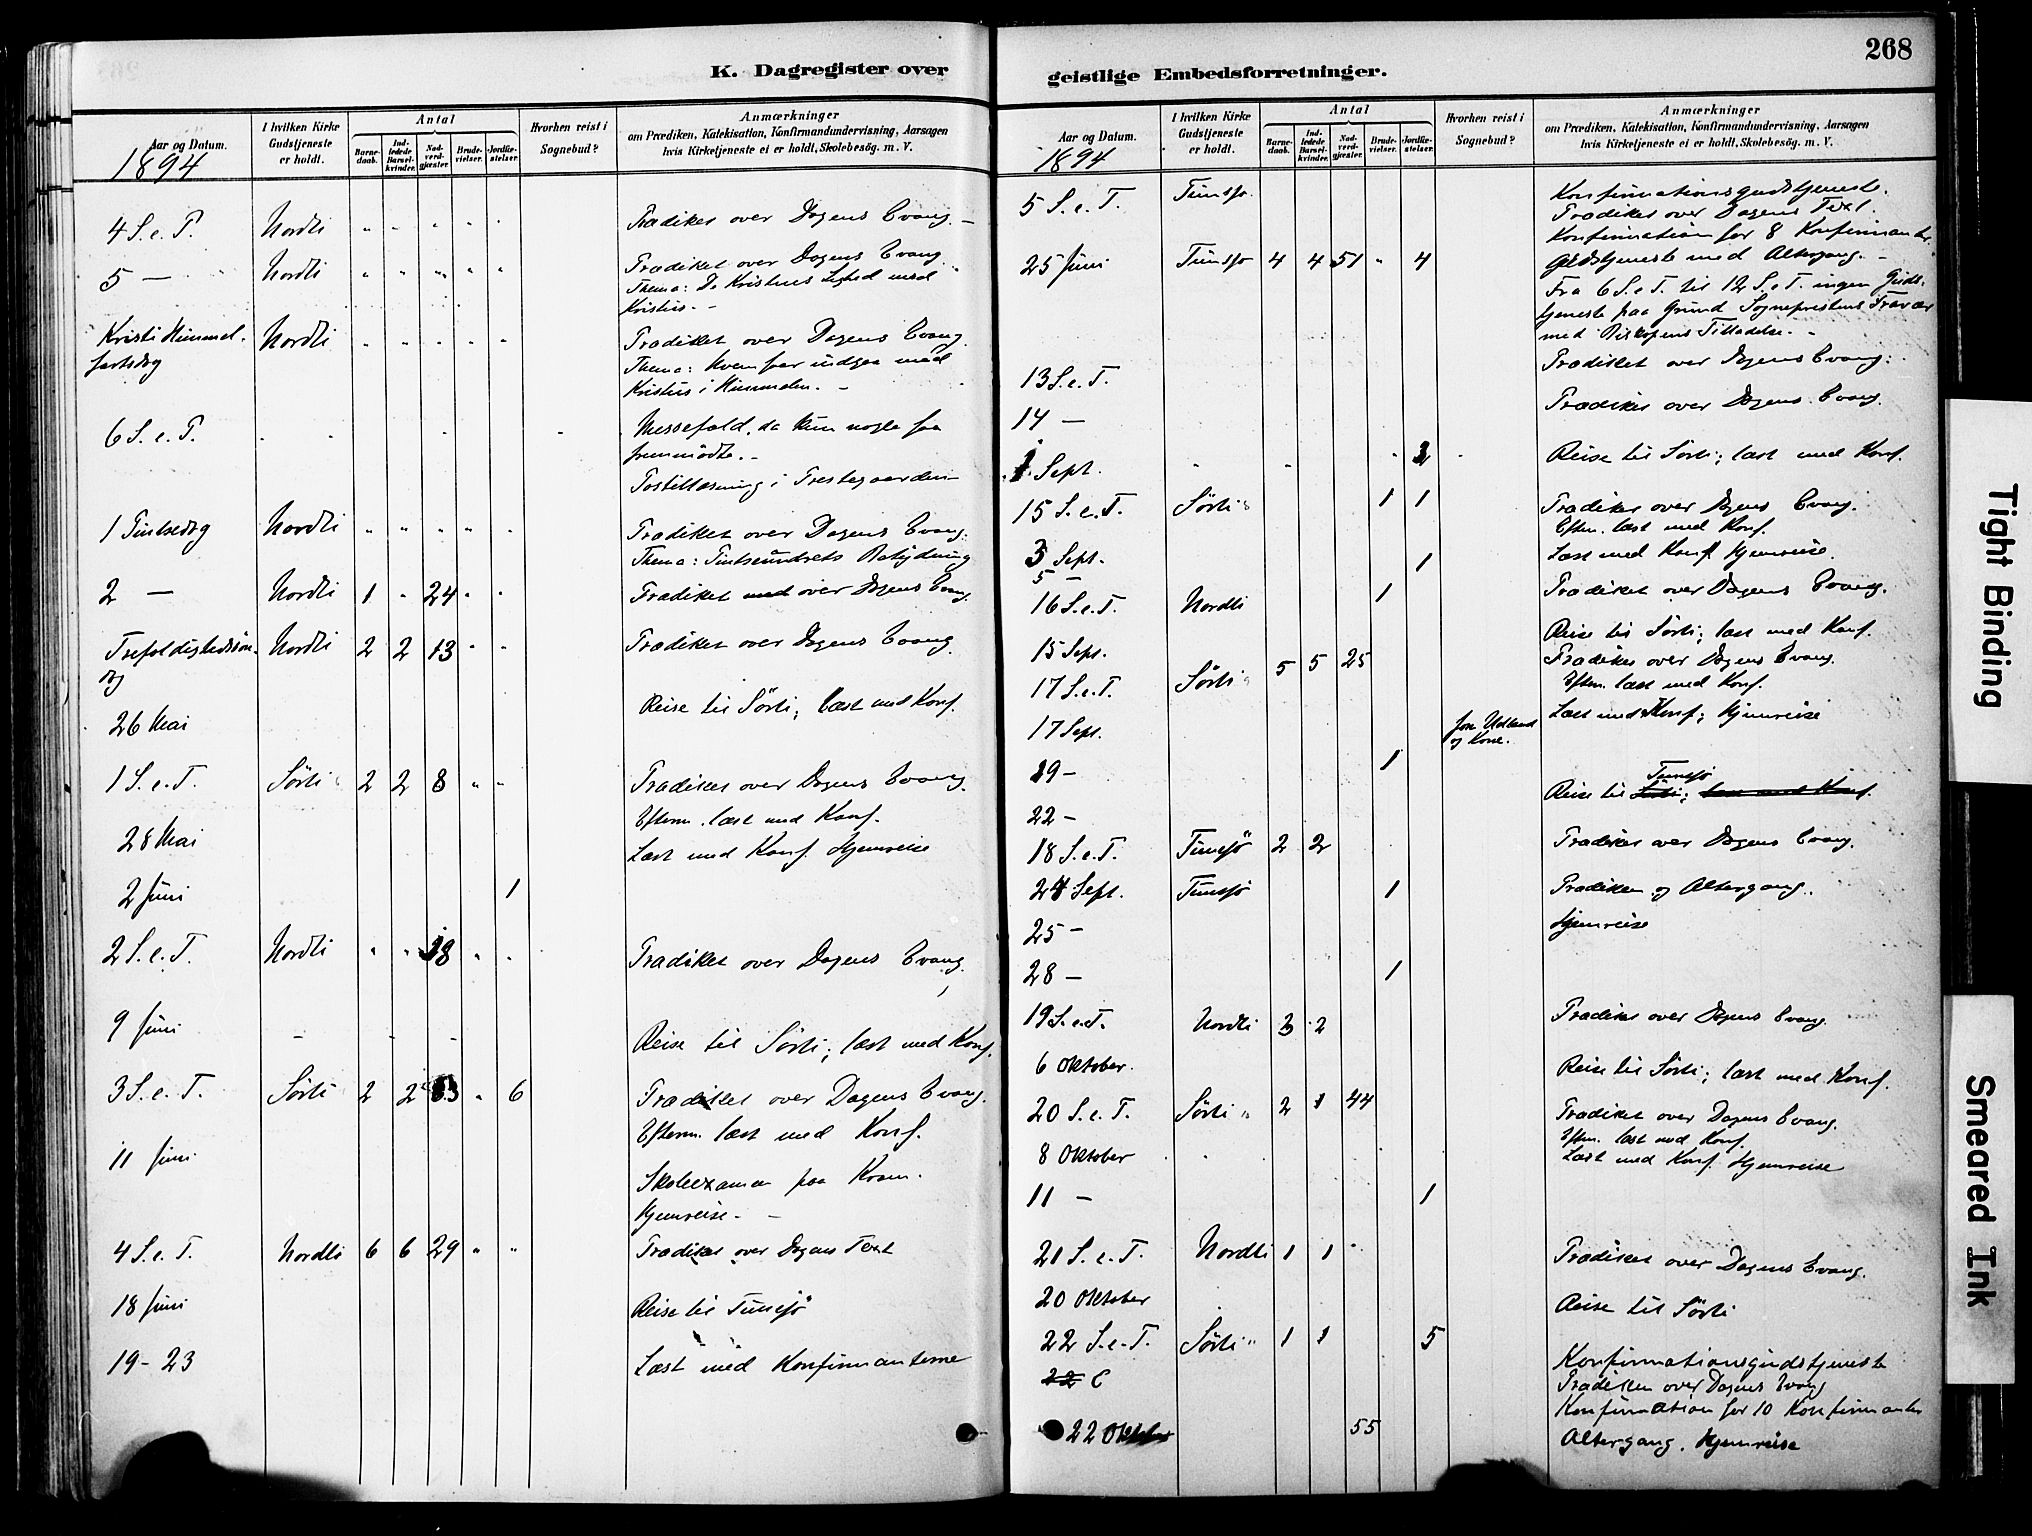 K. Dagregister over
Aar og Datum.
1894
I hvilken Kirke Gudstjeneste er holdt.
Antal
Barne-daab.
Ind-ledede Barsel-kvinder.
Nad-verd-gjæster.
Brude-vielser.
Jordfæ-stelser.
Hvorhen reist i Sognebud?
Anmærkninger
om Prædiken, Katekisation, Konfirmandundervisning, Aarsagen
hvis Kirketjeneste ei er holdt, Skolebesög. m. V.
4 S. e. P. Nordli " " " " " Prædiket over Dagens Evang. –
5 — Nordli " " " " " Prædiket over Dagens Evang.
Thema: De Kristnes Lighed med
Kristus. –
Kristi Himmel- Nordli " " " " " Prædiket over Dagens Evang.
fartsdag Thema: Hvem faar indgaa med
Kristus i Himmelen. –
6 S. e. P. Messefald, da kun nogle faa
fremmödte. –
Postillæsning i Prestegaarden –
1 Pintsedag Nordli " " " " " Prædiket over Dagens Evang:
Thema: Pintseundrets Betydning
2 — Nordli 1 " 24 " " Prædiket med over Dagens Evang.
Trefoldighedssön- Nordli 2 2 13 " " Prædiket over Dagens Evang.
dag
26 Mai Reise til Sörli; læst med Konf.
1 S. e. T. Sörli 2 2 8 " " Prædiket over Dagens Evang.
Efterm. læst med Konf.
28 Mai Læst med Konf. Hjemreise
2 Juni 1
2 S. e. T. Nordli " " 38 " " Prædiket over Dagens Evang.
9 Juni Reise til Sörli; læst med Konf.
3 S. e. T. Sörli 2 2 53 " 6 Prædiket over Dagens Evang.
Efterm. læst med Konf.
11 Juni
Skoleexamen paa Kvam.
Hjemreise. –
4 S. e. T. Nordli 6 6 29 " " Prædiket over Dagens Text
18 Juni Reise til Tunsjö
19 – 23 Læst med Konfirmanterne
geistlige Embedsforretninger.
268
Aar og Datum.
1894
I hvilken Kirke Gudstjeneste er holdt.
Antal
Barne-daab.
Ind-ledede Barsel-kvinder.
Nad-verd-gjæster.
Brude-vielser.
Jordfæ-stelser.
Hvorhen reist i Sognebud?
Anmærkninger
om Prædiken, Katekisation, Konfirmandundervisning, Aarsagen
hvis Kirketjeneste ei er holdt, Skolebesög. m. V.
5 S. e. T. Tunsjö Konfirmationsgudstjeneste.
Prædiket over Dagens Text.
Konfirmation for 8 Konfirmanter.
25 Juni Tunsjö 4 4 51 " 4 Gudstjeneste med Altergang. –
Fra 6 S. e. T. til 12 S. e. T. ingen Guds-
tjeneste paa Grund Sogneprestens Fravær
med Biskopens Tilladelse. –
13 S. e. T. Prædiket over Dagens Evang.
14 — Prædiket over Dagens Evang.
1 Sept. Reise til Sörli; læst med Konf.
15 S. e. T. Sörli 1 1 Prædiket over Dagens Evang.
Efterm. læst med Konf.
3 Sept. 1 Læst med Konf. Hjemreise.
5 –
16 S. e. T. Nordli 1 Prædiket over Dagens Evang.
15 Sept. Reise til Sörli; læst med Konf.
17 S. e. T. Sörli 5 5 25 Prædiket over Dagens Evang.
Efterm. læst med Konf.
17 Sept. Læst med Konf; Hjemreise
og Kone.
19 – 1
22 – Reise til Sörli; Tunsjö læst med Konf.
18 S. e. T. Tunsjö 2 2 Prædiket over Dagens Evang.
24 Sept. Tunsjö 1 Prædiken og Altergang.
25 – Hjemreise
28 – 1
19 S. e. T. Nordli 3 2 Prædiket over Dagens Evang.
6 Oktober. Reise til Sörli; læst med Konf.
20 S. e. T. Sörli 2 1 44 Prædiket over Dagens Evang.
Efterm. læst med Konf.
8 Oktober Læst med Konf. Hjemreise
11 – 1
21 S. e. T. Nordli 1 1 Prædiket over Dagens Evang.
20 Oktober Reise til Sörli
22 S. e. T. Sörli 1 1 5 Konfirmationsgudstjeneste
22 Prædiken over Dagens Evang
Konfirmation for 10 Konfirmanter
22 Oktober 55 Altergang. Hjemreise
Tight Binding
Smeared Ink